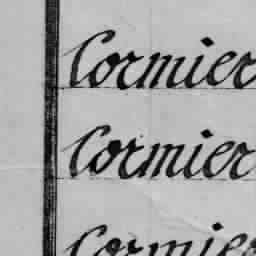 Cormier
Cormier
Cormier